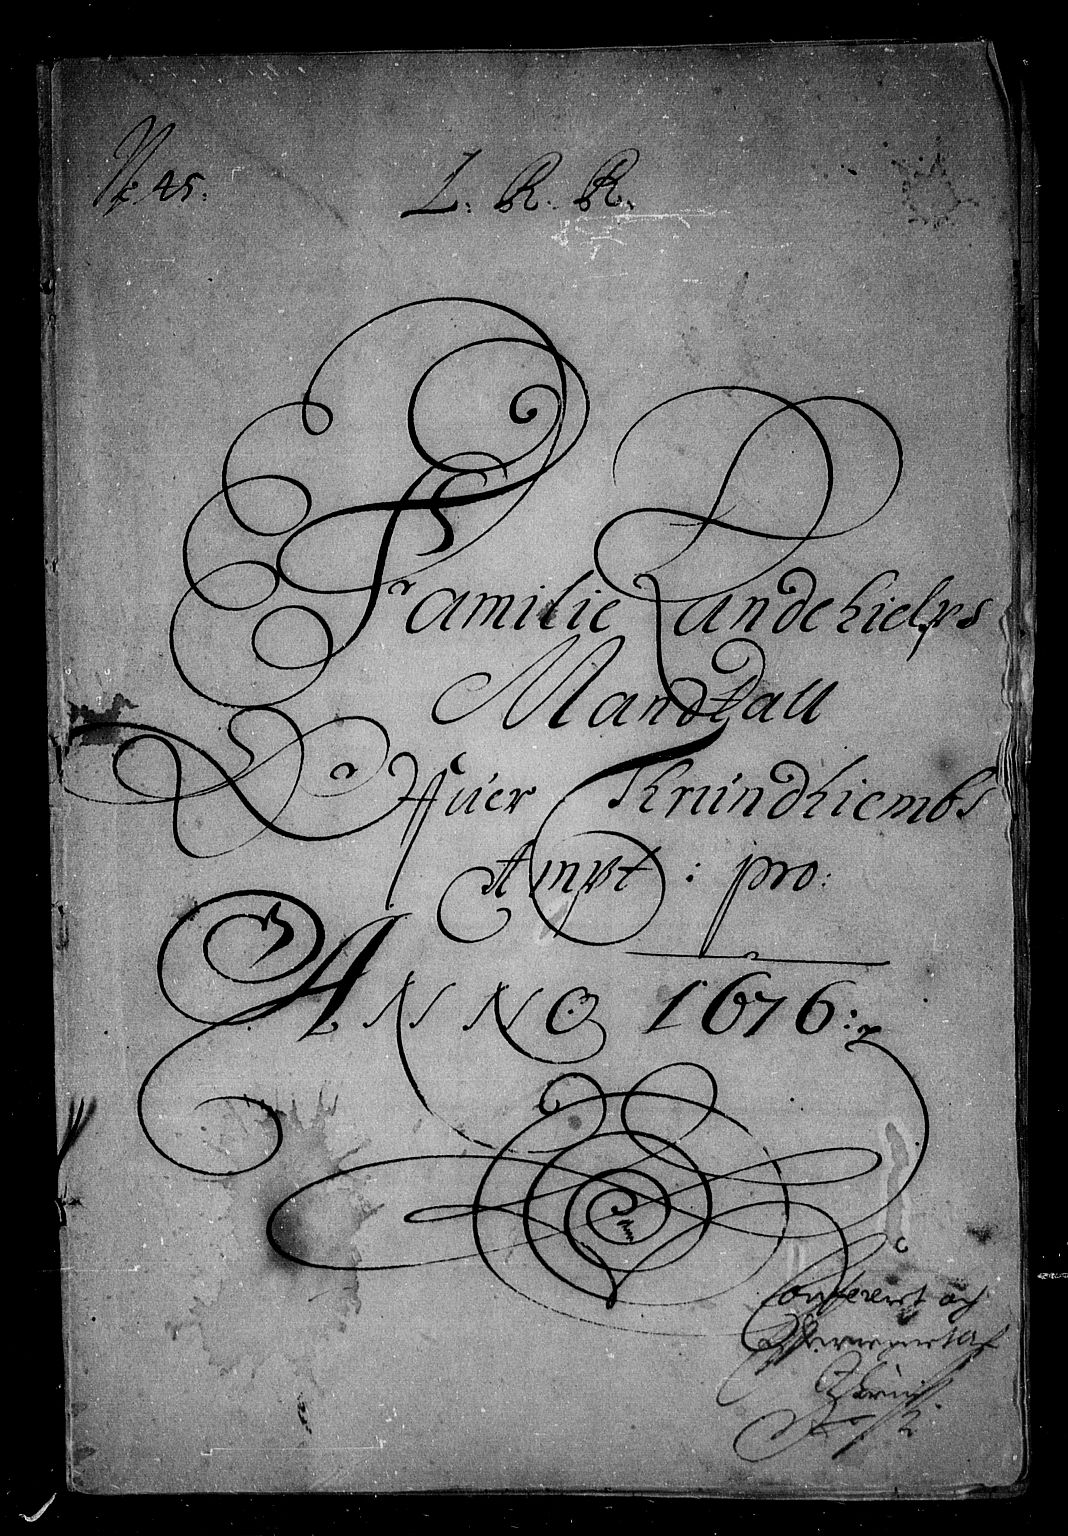 No 45.
L. R. R.
Familie Landehielps
Mandtall
Offuer Thrundhiembs
Ampt : pro:
ANNO 1676:
Conferert och